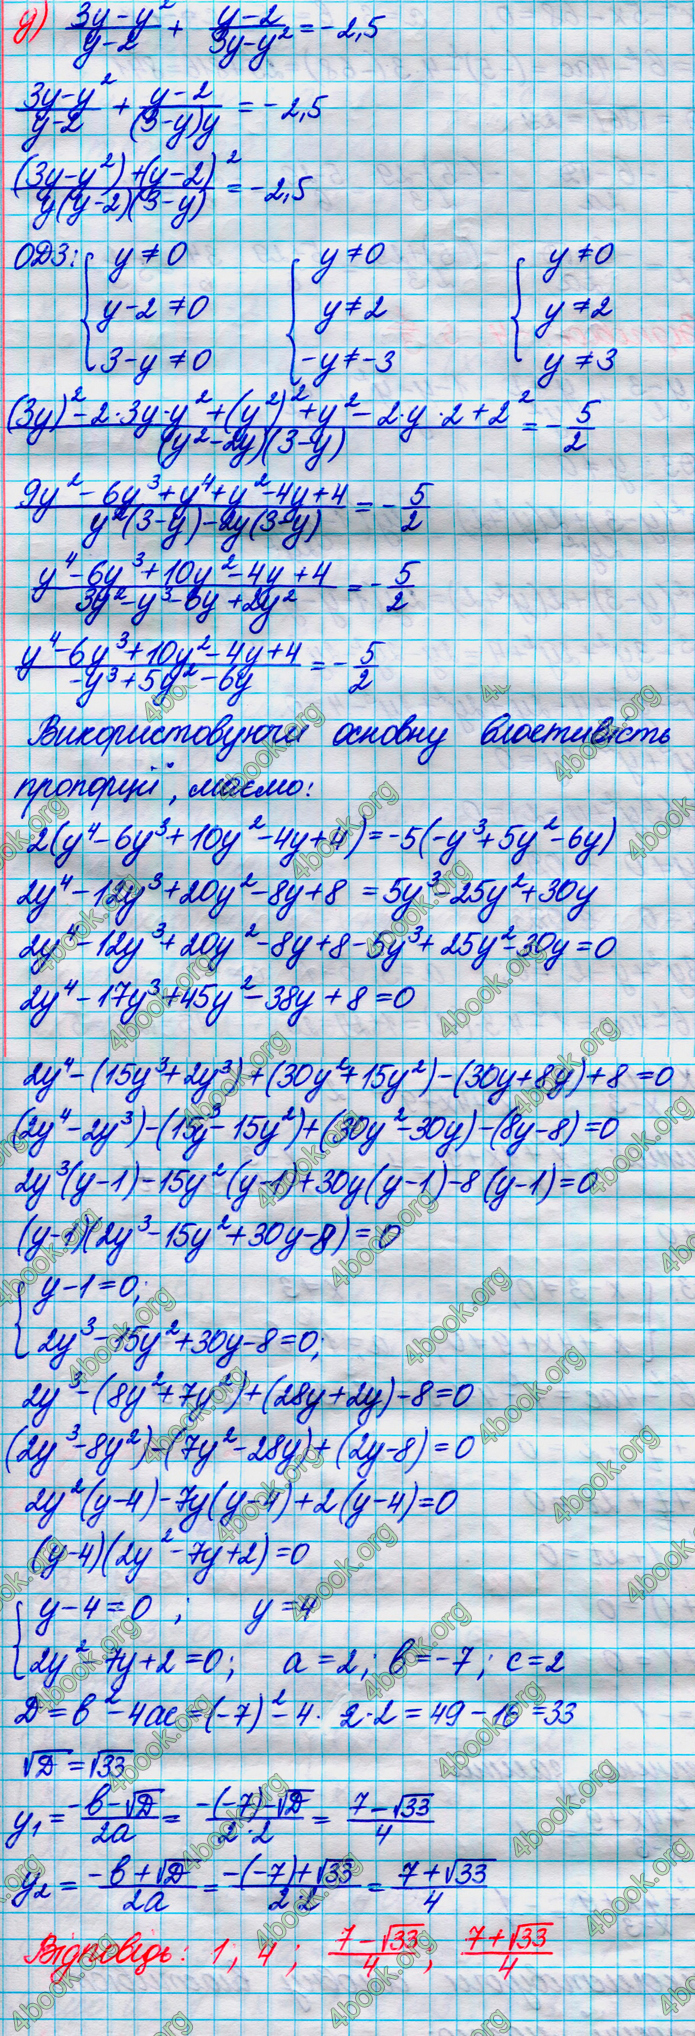 у) (3y-y²)/(y-2) + (y-2)/(3y-y²) = -2,5
(3y-y²)/(y-2) + (y-2)/((3-y)y) = -2,5
((3y-y²)+(y-2)²)/(y(y-2)(3-y)) = -2,5
ОДЗ: { y≠0 { y≠0 { y≠0
y-2≠0 y≠2 y≠2
3-y≠0 -y≠-3 y≠3
((3y)²-2·3y·y²+(y²)²+y²-2·y·2+2²)/((y²-2y)(3-y)) = -5/2
(9y²-6y³+y⁴+y²-4y+4)/(y²(3-y)-2y(3-y)) = -5/2
(y⁴-6y³+10y²-4y+4)/(3y²-y³-6y+2y²) = -5/2
(y⁴-6y³+10y²-4y+4)/(-y³+5y²-6y) = -5/2
Використовуючи основну властивість
пропорції, маємо:
2(y⁴-6y³+10y²-4y+4)=-5(-y³+5y²-6y)
2y⁴-12y³+20y²-8y+8 = 5y³-25y²+30y
2y⁴-12y³+20y²-8y+8-5y³+25y²-30y=0
2y⁴-17y³+45y²-38y+8=0
2y⁴-(15y³+2y³)+(30y²+15y²)-(30y+8y)+8=0
(2y⁴-2y³)-(15y³-15y²)+(30y²-30y)-(8y-8)=0
2y³(y-1)-15y²(y-1)+30y(y-1)-8(y-1)=0
(y-1)(2y³-15y²+30y-8)=0
{ y-1=0;
2y³-15y²+30y-8=0;
2y³-(8y²+7y²)+(28y+2y)-8=0
(2y³-8y²)-(7y²-28y)+(2y-8)=0
2y²(y-4)-7y(y-4)+2(y-4)=0
(y-4)(2y²-7y+2)=0
{ y-4=0 ; y=4
2y²-7y+2=0; a=2; в=-7; c=2
Д=в²-4ac=(-7)²-4·2·2=49-16=33
√Д=√33
y₁ = (-в-√Д)/2a = (-(-7)-√Д)/(2·2) = (7-√33)/4
y₂ = (-в+√Д)/2a = (-(-7)+√33)/(2·2) = (7+√33)/4
Відповідь: 1; 4; (7-√33)/4; (7+√33)/4
4book.org